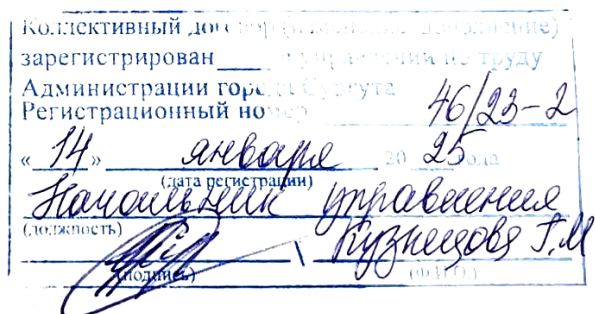 Коллективный договор (изменение, дополнение)
зарегистрирован в управлении по труду
Администрации города Сургута
Регистрационный номер 46/23-2
« 14 » января 20 25 года
(дата регистрации)
Начальник управления
(должность)
\ Кузнецова Г.М
(подпись) (Ф.И.О.)